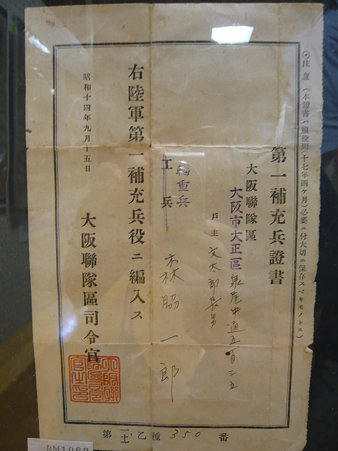 ◎注意(本證書ハ服役間(十七年四ケ月)必要ニ付大切ニ保存スベキモノトス)
第一補充兵證書
大阪聯隊區
大阪市大正區
戶主
長男
輜重兵
工兵
森脇一郎
右陸軍第一補充兵役ニ編入ス
昭和十四年九月十五日
大阪聯隊區司令官
第一乙種350番